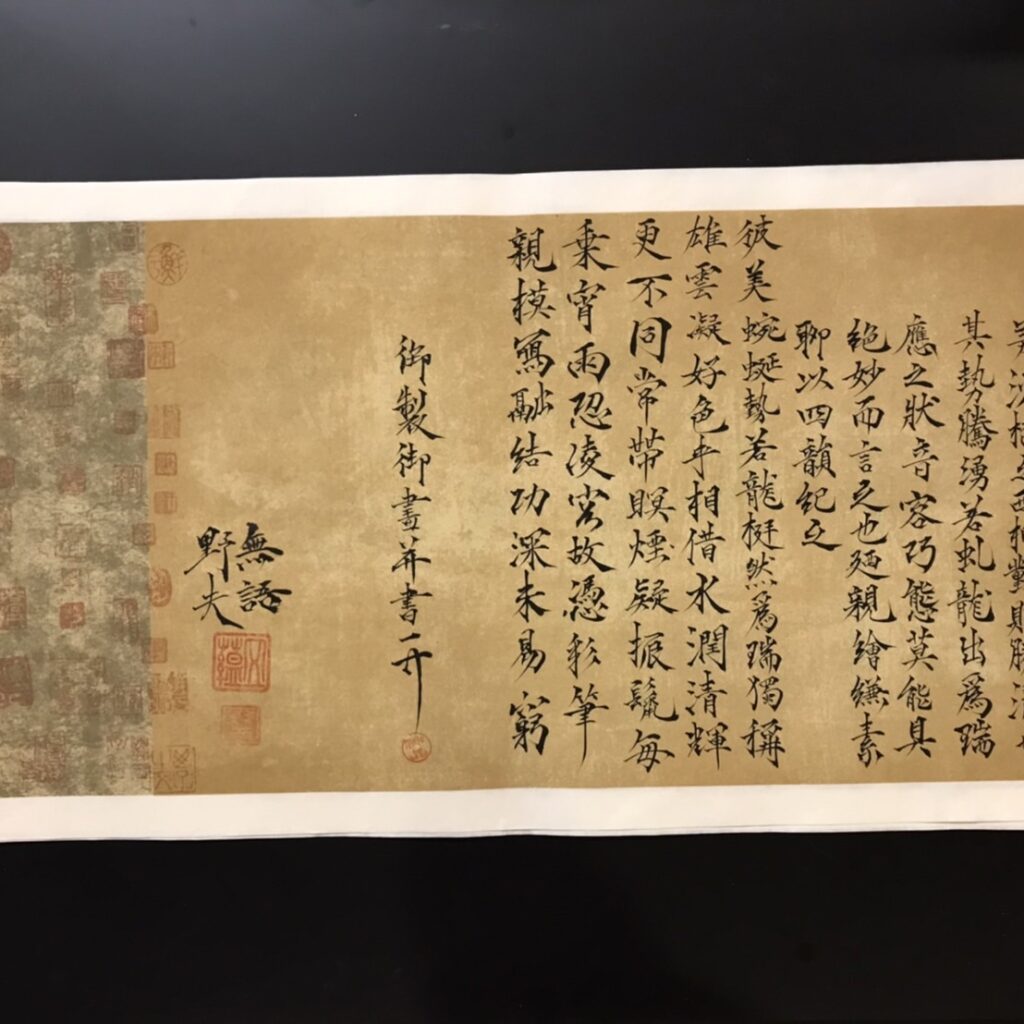 橋之西相對則勝
其勢騰湧若虬龍出爲瑞
應之狀竒容巧態莫能具
絕妙而言之也廼親繪縑素
聊以四韻紀之
彼美蜿蜒勢若龍挺然爲瑞獨稱
雄雲凝好色来相借水潤清輝
更不同常帶暝煙疑振鬣每
乘宵雨恐凌空故憑彩筆
親模寫融結功深未易窮
御製御畫并書
無語
野夫